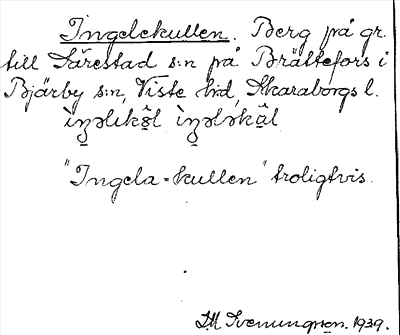 Ingelekullen. Berg på gr.
till Särestad s:n på Brättefors i
Bjärby s:n, Viste hd, Skaraborgs l.
"Ingela-kullen" troligtvis.
Svenungsson. 1939.